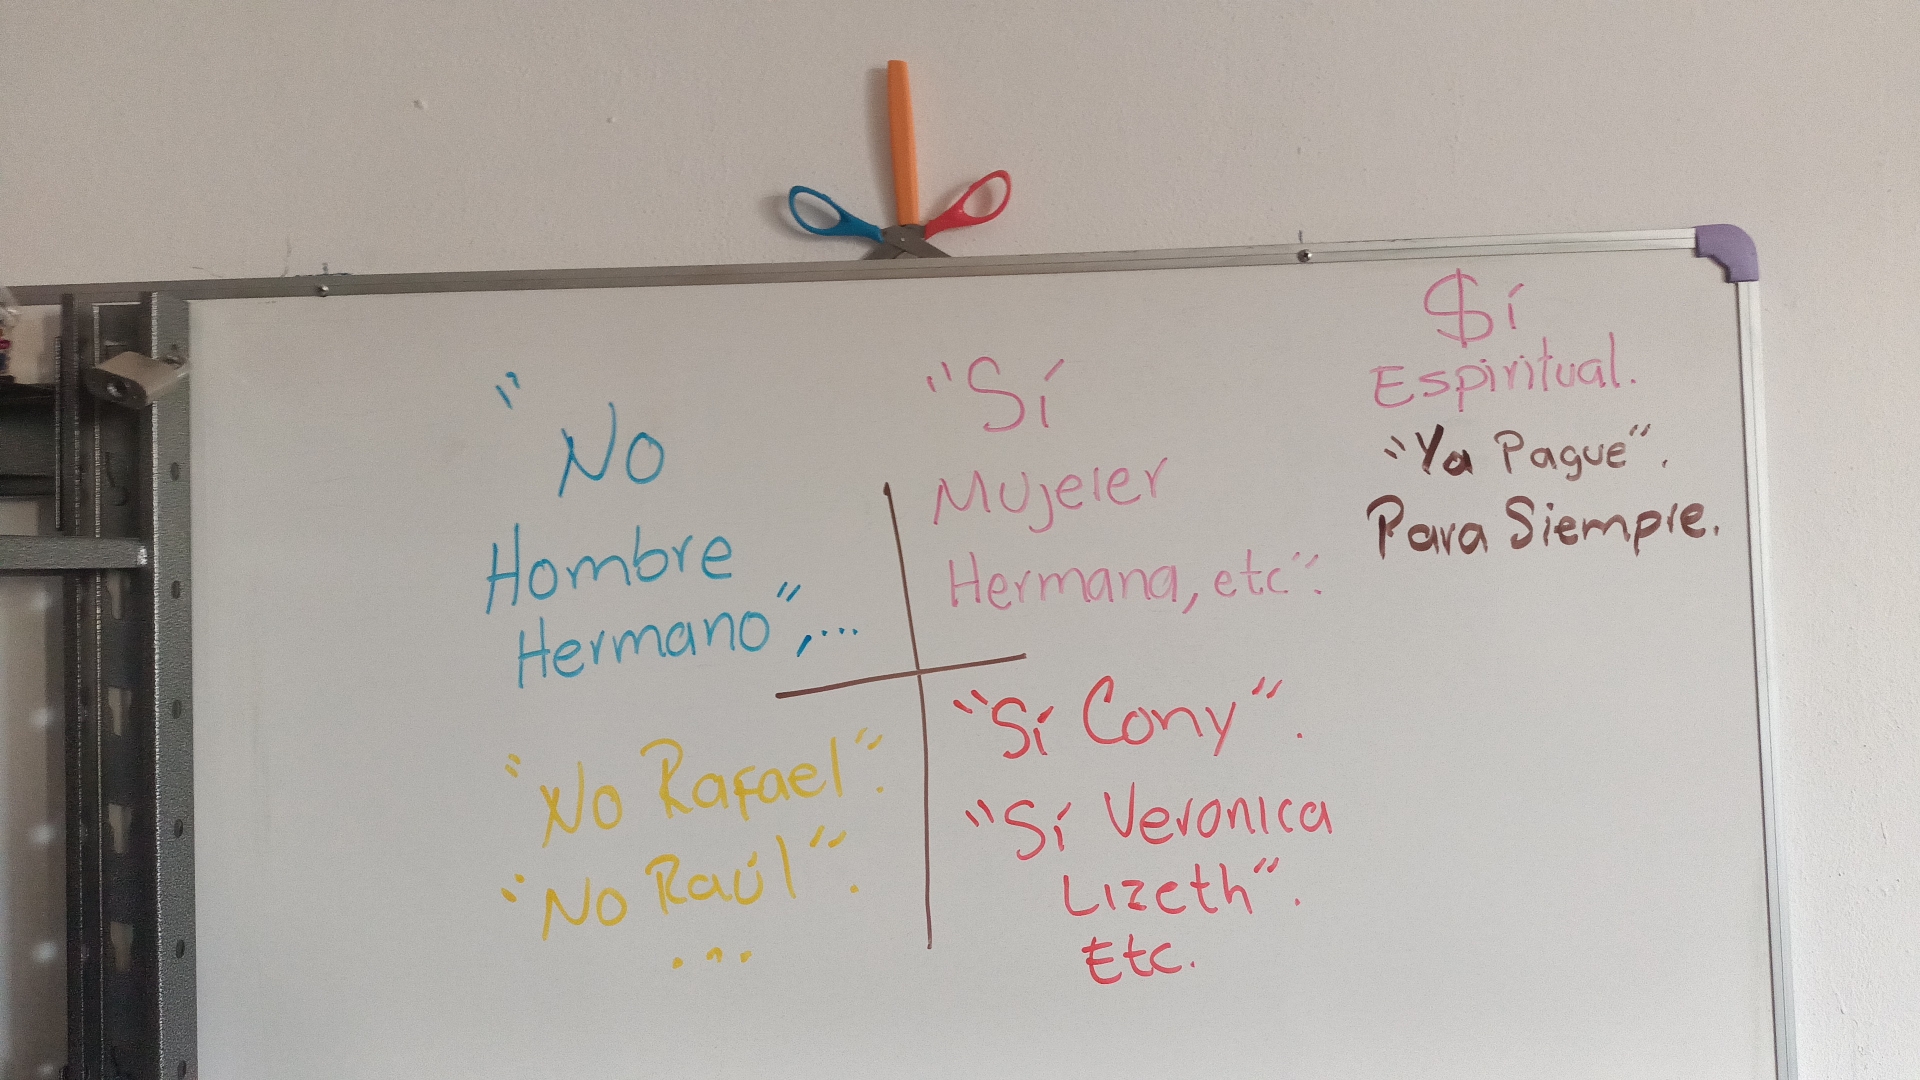 "No
Hombre
Hermano",...
"Sí
Mujeler
Hermana, etc".
$í
Espiritual.
"Ya Pague".
Para Siempre.
"No Rafael".
"No Raúl".
...
"Sí Cony".
"Sí Veronica
Lizeth".
Etc.